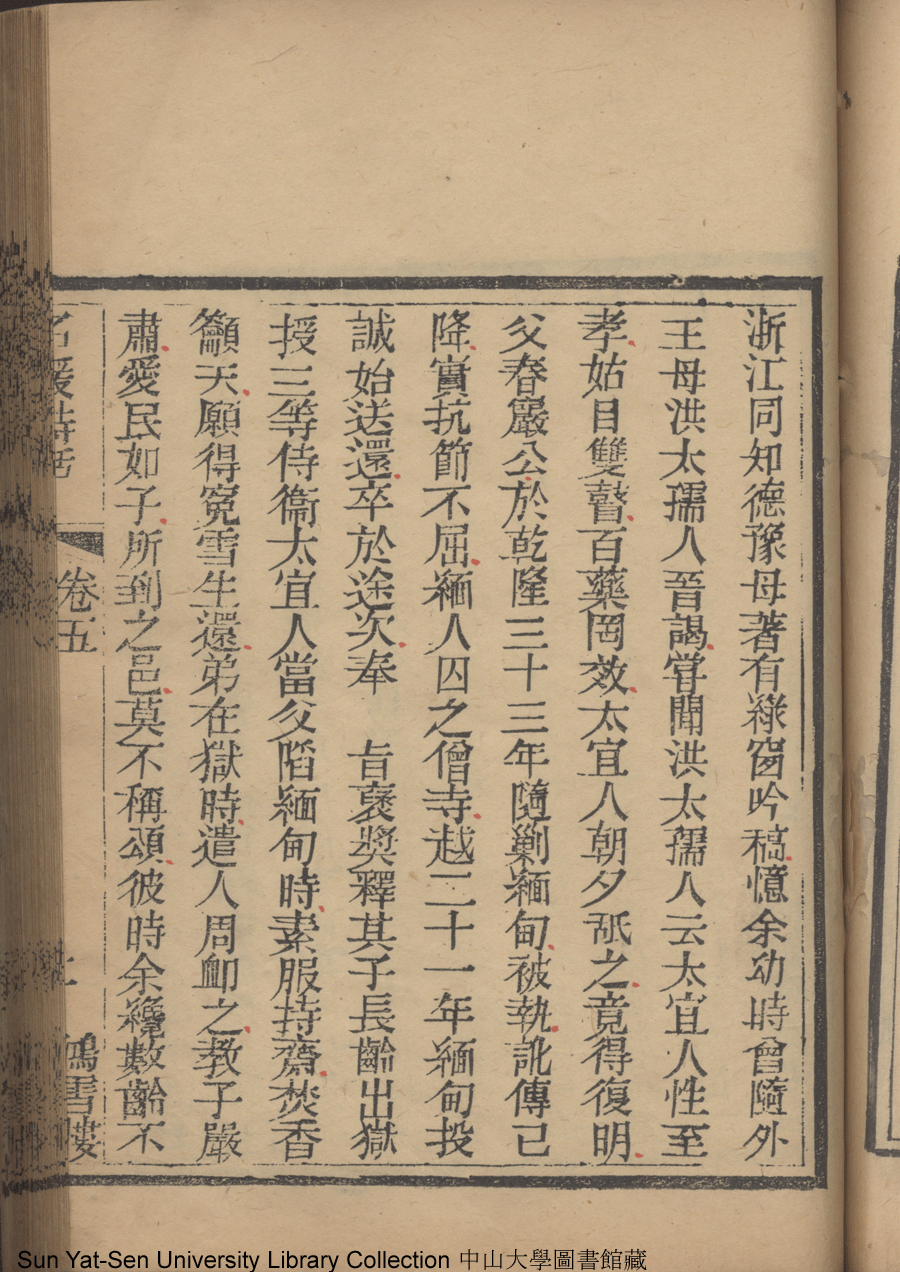 浙江同知德豫母著有綠窗吟稿憶余幼時曾隨外
王母洪太孺人晉謁嘗聞洪太孺人云太宜人性至
孝姑目雙瞽百藥罔效太宜人朝夕舐之竟得復明
父春巖公於乾隆三十三年隨剿緬甸被執訛傳已
降實抗節不屈緬人囚之僧寺越二十一年緬甸投
誠始送還卒於途次奉　旨褒獎釋其子長齡出獄
授三等侍衞太宜人當父陷緬甸時素服持齋焚香
籲天願得寃雪生還弟在獄時遣人周卹之教子嚴
肅愛民如子所到之邑莫不稱頌彼時余纔數齡不
名媛詩話　卷五　　鴻雪樓
Sun Yat-Sen University Library Collection 中山大學圖書館藏